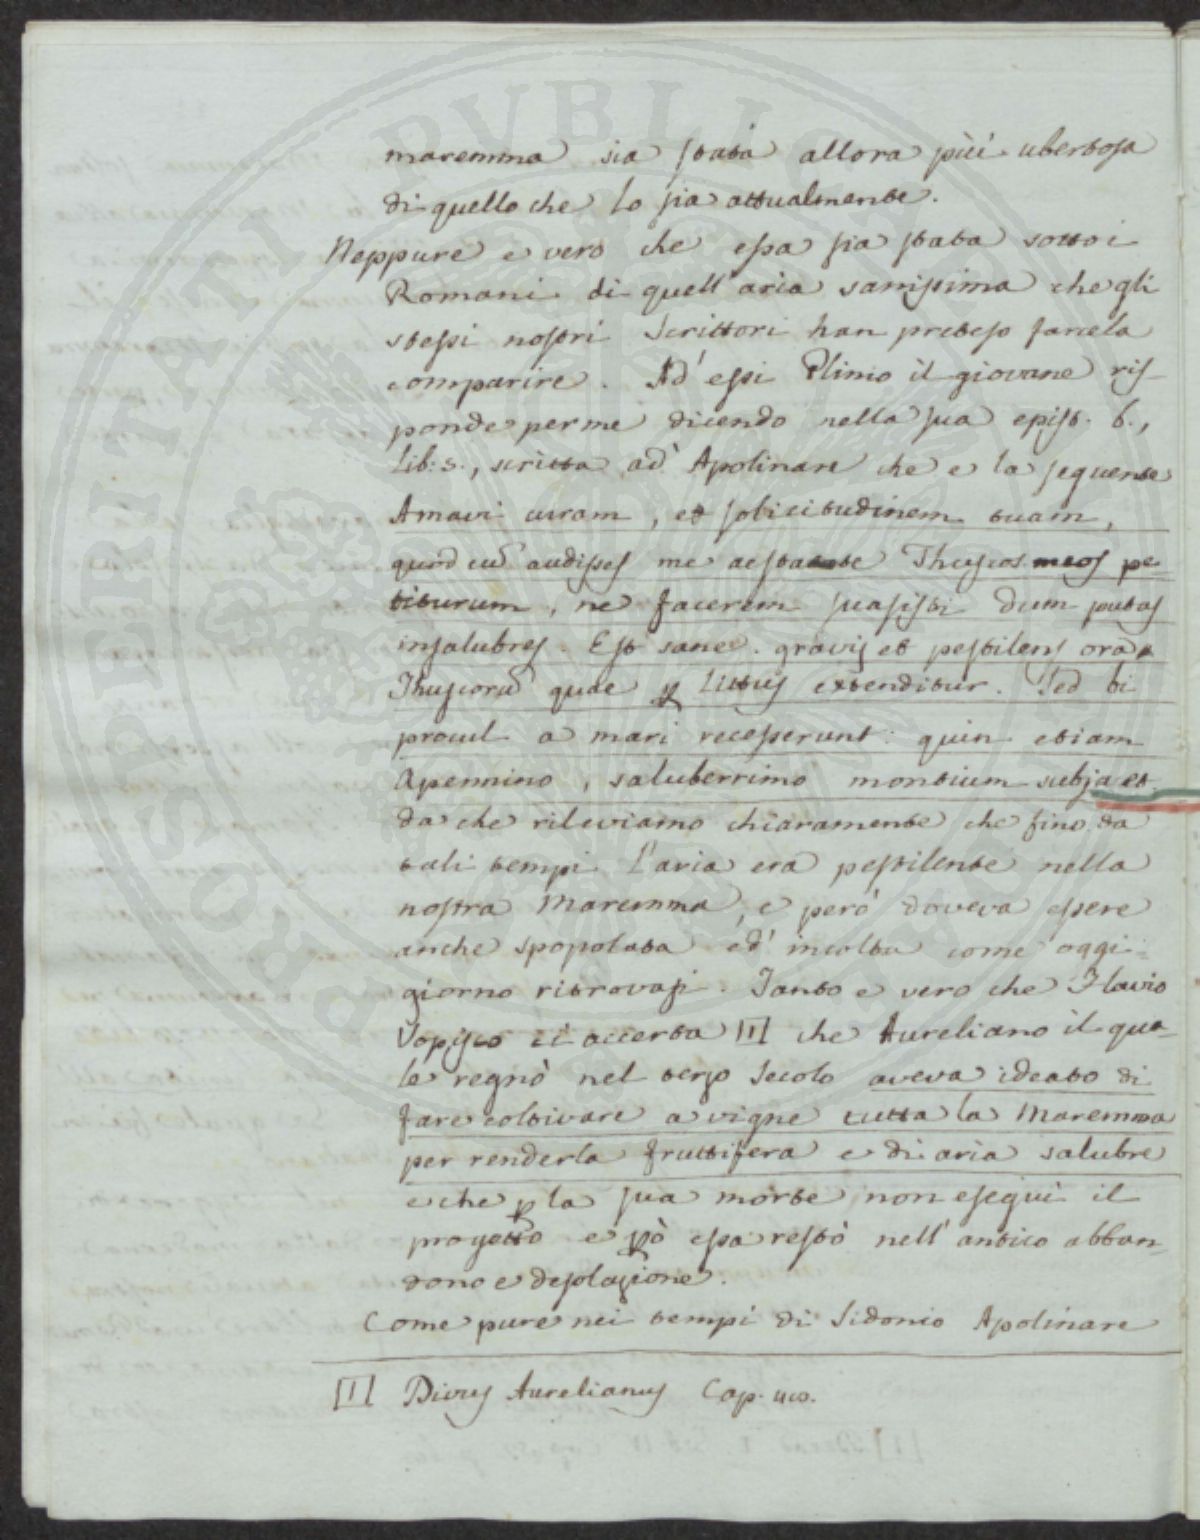 maremma sia stata allora più ubertosa
di quello che lo sia attualmente.
Neppure e vero che essa sia stata sotto i
Romani di quell'aria sanissima che gli
stessi nostri Scrittori han preteso farcela
comparire. Ad' essi Plinio il giovane ris-
ponde per me dicendo nella sua epist. 6.,
Lib: 5., scritta ad' Apolinare che e la seguente
Amavi curam, et solicitudinem tuam,
quod cū audisses me aestate Thuscos meos pe-
titurum, ne facerem suasisti dum putas
insalubres. Est sane gravis et pestilens ora
Thuscorū quae p littus extenditur. Sed hi
procul a mari recesserunt: quin etiam
Apennino, saluberrimo montium subjacet
da che rileviamo chiaramente che fino da
tali tempi l'aria era pestilente nella
nostra Maremma, e però doveva essere
anche spopolata ed' incolta come oggi
giorno ritrovasi. Tanto e vero che Flavio
Vopisco ci accerta [1] che Aureliano il qua-
le regnò nel terzo Secolo aveva ideato di
fare coltivare a vigne tutta la Maremma
per renderla fruttifera e di aria salubre
e che p la sua morte non eseguì il
progetto e pò essa restò nell'antico abban-
dono e desolazione.
Come pure nei tempi di Sidonio Apolinare
[1] Divus Aurelianus Cap.
PROSPERITATI PUBLICAE